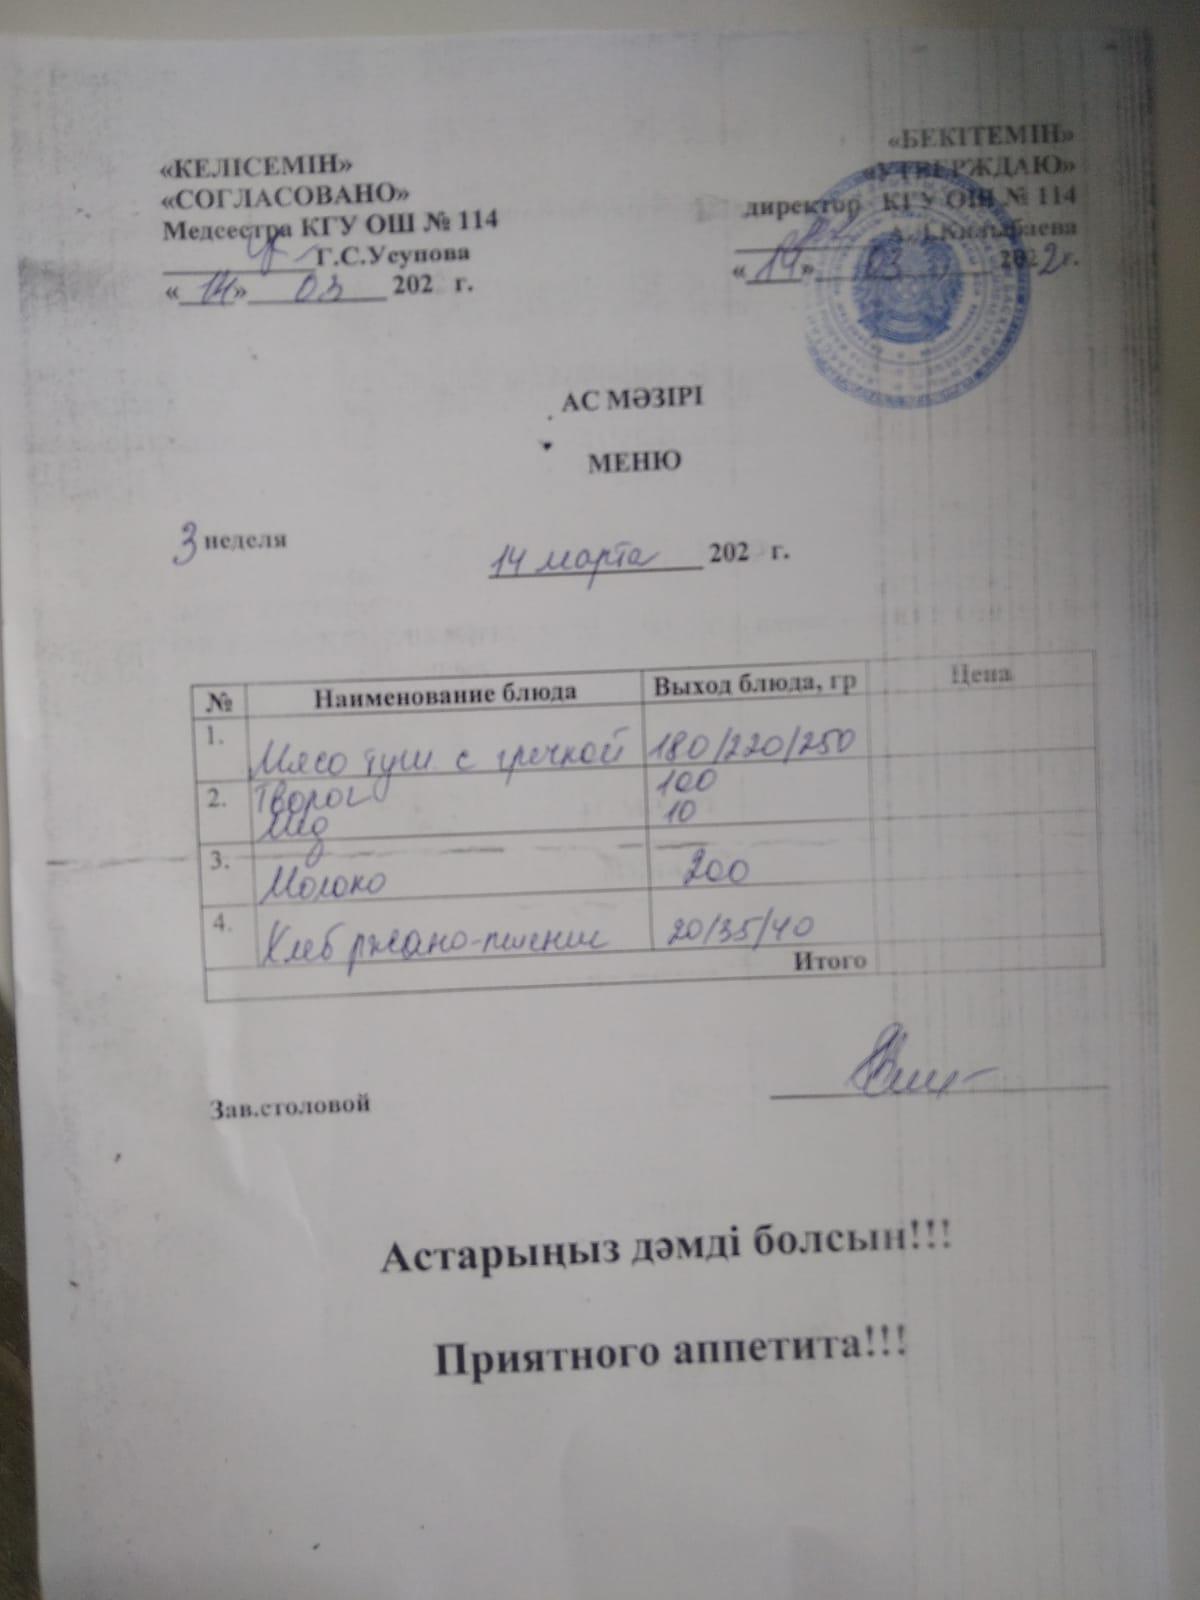 «КЕЛІСЕМІН»
«СОГЛАСОВАНО»
Медсестра КГУ ОШ № 114
Г.С.Усупова
«14» 03 202 г.
«БЕКІТЕМІН»
«УТВЕРЖДАЮ»
директор КГУ ОШ № 114
«14» 03 2022 г.
АС МӘЗІРІ
МЕНЮ
3 неделя
14 марта 202 г.
№ Наименование блюда Выход блюда, гр Цена
1. Мясо туш с гречкой 180/220/250
2. Творог 100
Мёд 10
3. Молоко 200
4. Хлеб ржано-пшенич 20/35/40
Итого
Зав.столовой
Астарыңыз дәмді болсын!!!
Приятного аппетита!!!